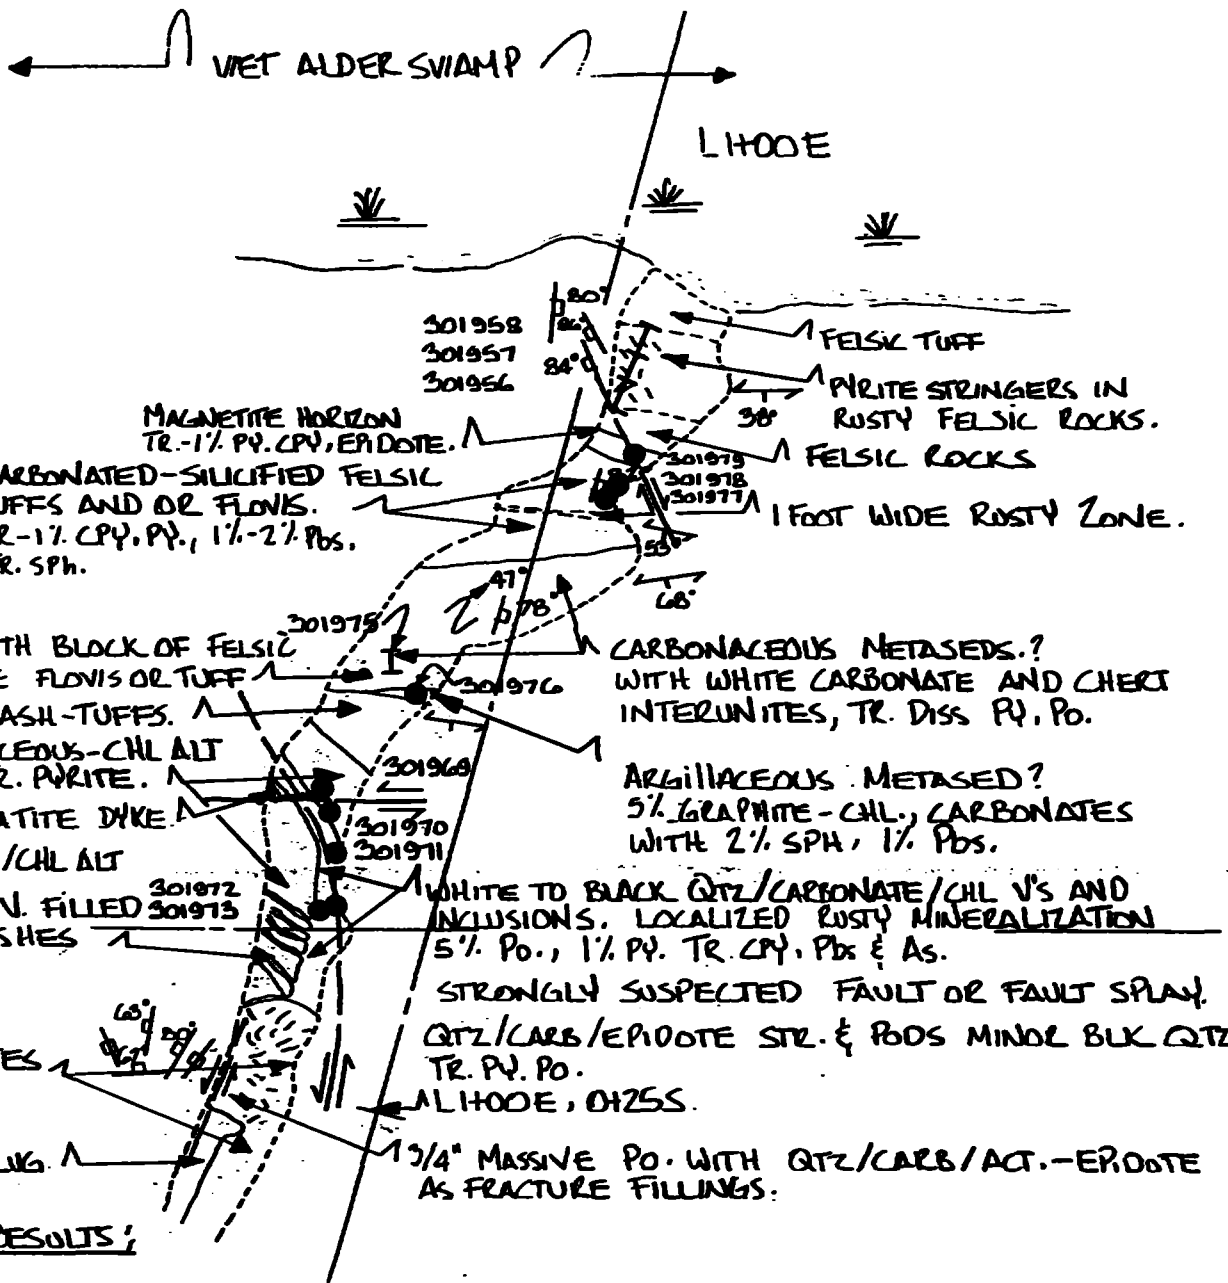 WET ALDER SWAMP
L1+00E
301958
301957
301956
80°
86°
84°
FELSIC TUFF
PYRITE STRINGERS IN
RUSTY FELSIC ROCKS.
38°
MAGNETITE HORIZON
TR.-1% PY. CPY, EPIDOTE.
FELSIC ROCKS
301979
301978
301977
ARBONATED-SILICIFIED FELSIC
UFFS AND OR FLOWS.
R-1% CPY. PY., 1%-2% Pbs.
R. SPh.
1 FOOT WIDE RUSTY ZONE.
53°
68°
47°
78°
301975
TH BLOCK OF FELSIC
E FLOWS OR TUFF
301976
ASH-TUFFS.
CARBONACEOUS METASEDS.?
WITH WHITE CARBONATE AND CHERT
INTERUNITES, TR. DISS PY. PO.
CEOUS-CHL ALT
R. PYRITE.
301969
ATITE DYKE.
301970
301971
ARGILLACEOUS METASED?
5% GRAPHITE-CHL., CARBONATES
WITH 2% SPH, 1% Pbs.
/CHL ALT
301972
V. FILLED 301973
SHES
WHITE TO BLACK QTZ/CARBONATE/CHL V'S AND
INCLUSIONS. LOCALIZED RUSTY MINERALIZATION
5% Po., 1% PY. TR. CPY, Pbs & As.
STRONGLY SUSPECTED FAULT OR FAULT SPLAY.
QTZ/CARB/EPIDOTE STR. & PODS MINOR BLK QTZ
TR. PY. PO.
TES
L1+00E, 0+25S.
3/4" MASSIVE PO. WITH QTZ/CARB/ACT.-EPIDOTE
AS FRACTURE FILLINGS.
RESULTS;